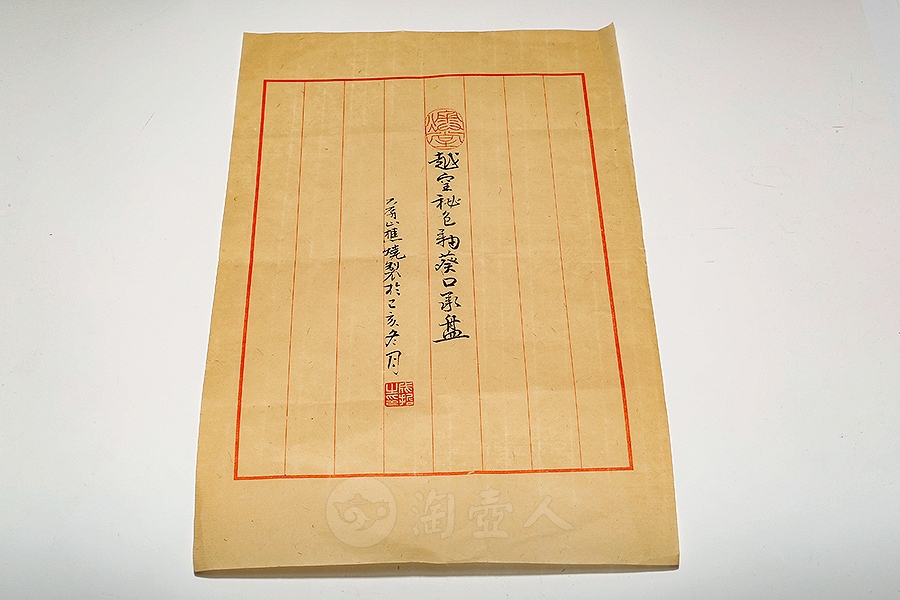 越窑祕色釉葵口承盘
山樵燒製於己亥冬月
淘壺人